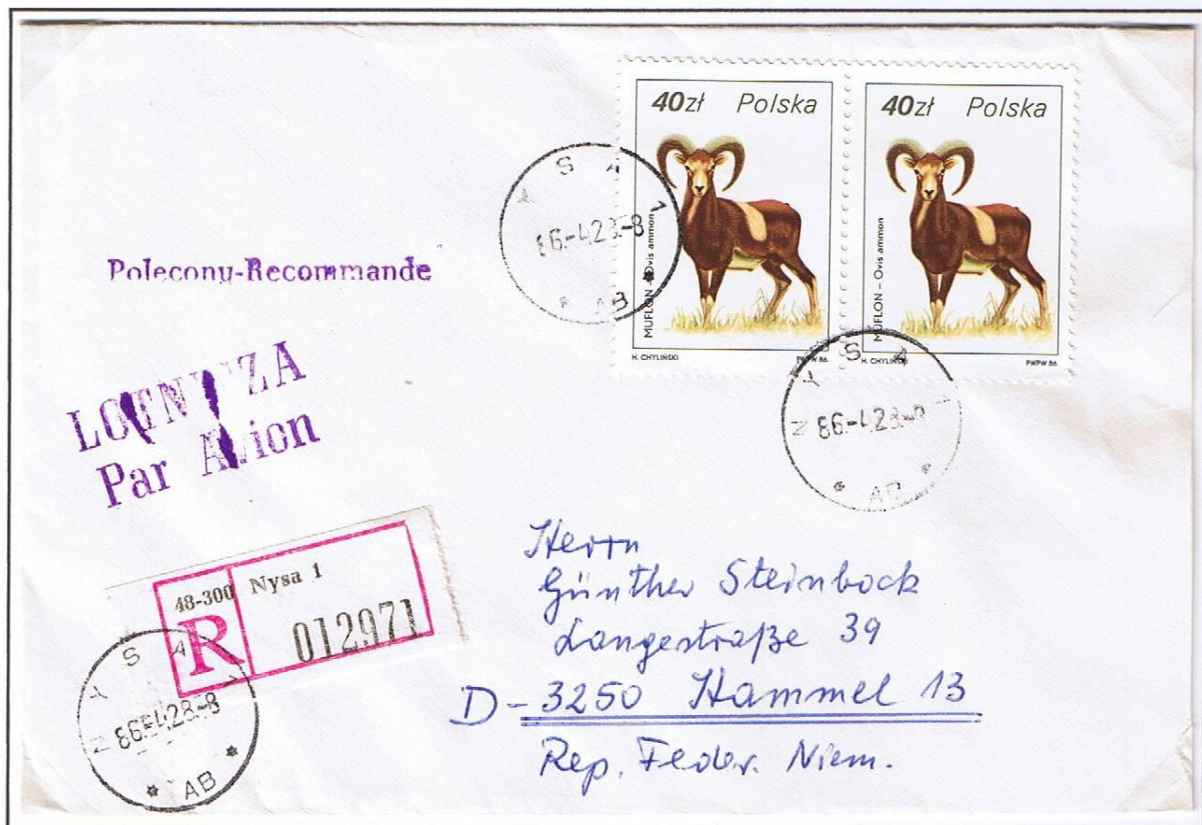 40zł Polska
MUFLON – Ovis ammon
H. CHYLIŃSKI PWPW 86.
40zł Polska
MUFLON – Ovis ammon
H. CHYLIŃSKI PWPW 86
NYSA 1
86.-4.28-8
* AB *
NYSA
86-4.28-8
* AB *
Polecony-Recommande
LOTNICZA
Par Avion
48-300 Nysa 1
R 012971
NYSA 1
86-4.28-8
* AB *
Herrn
Günther Steinbock
Langestraße 39
D-3250 Hammel 13
Rep. Feder. Niem.